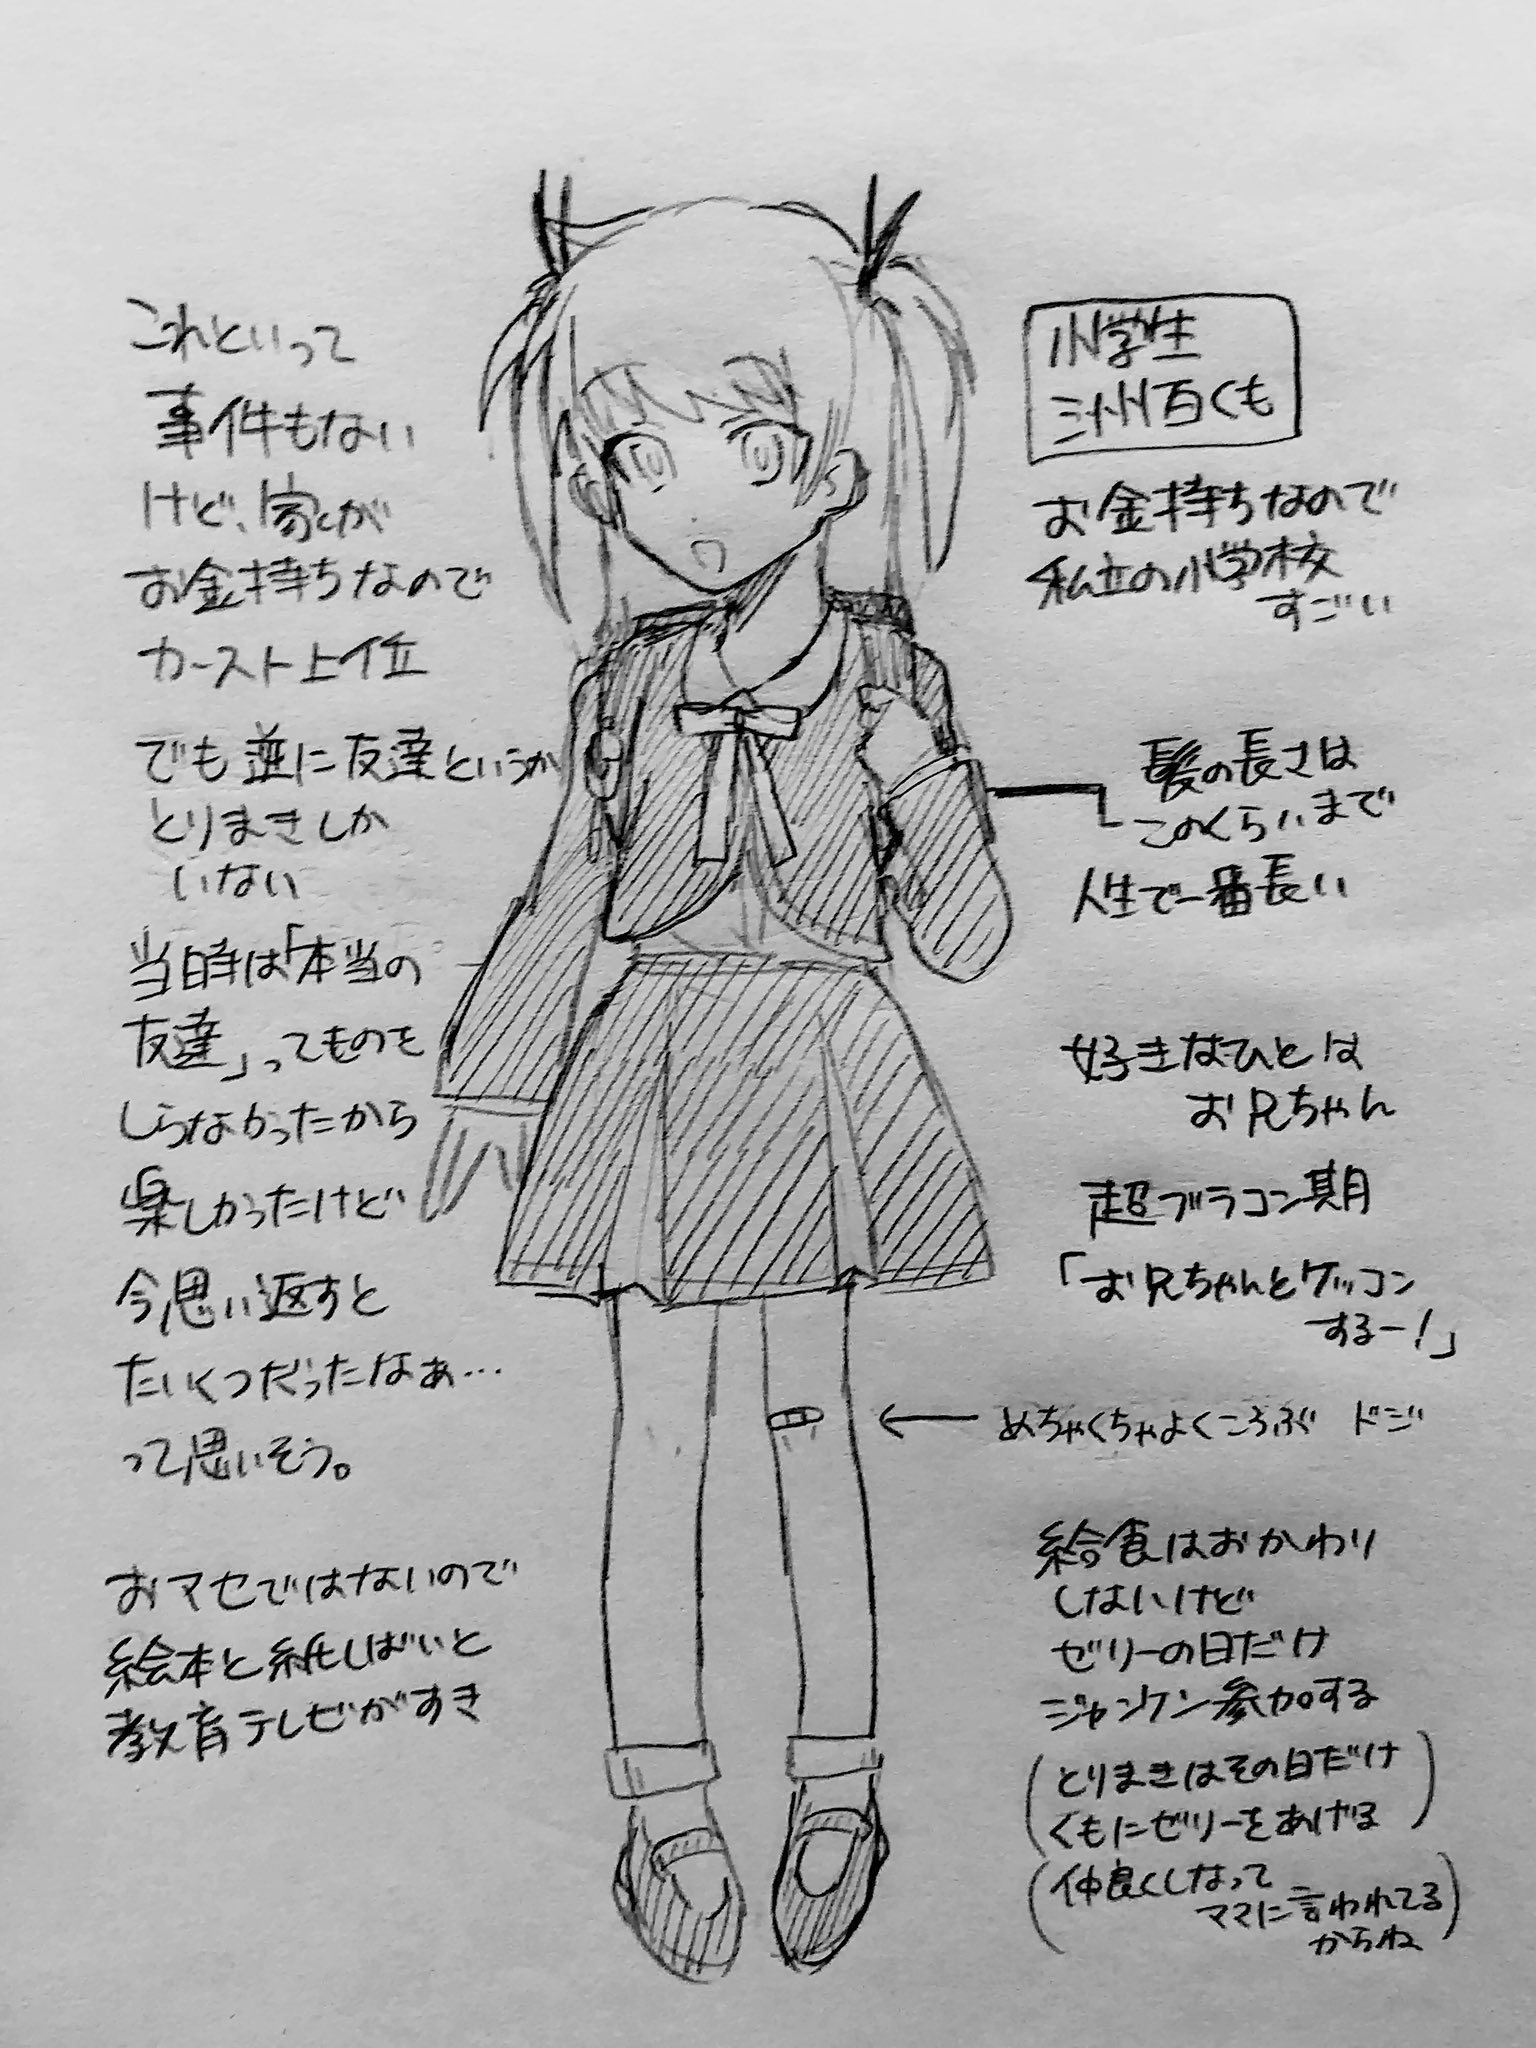 これといって
事件もない
けど、家が
お金持ちなので
カースト上位
でも並に友達というか
とりまきしか
いない
当時は「本当の
友達」ってものを
しらなかったから
楽しかったけど
今思い返すと
たいくつだったなぁ…
って思いそう。
おマセではないので
絵本と紙しばいと
教育テレビがすき
小学生
三州百くも
お金持ちなので
私立の小学校
すごい
髪の長さは
このくらいまで
人生で一番長い
好きなひとは
お兄ちゃん
超ブラコン期
「お兄ちゃんとケッコン
するー!」
めちゃくちゃよくころぶ ドジ
給食はおかわり
しないけど
ゼリーの日だけ
ジャンケン参加する
(とりまきはその日だけ
くもにゼリーをあげる)
(仲良くしなって
ママに言われてる
からね)